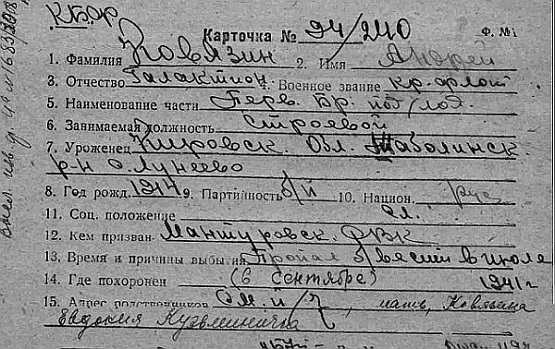 КБФ
Карточка № 94/240 Ф. №1
1. Фамилия Ковязин 2. Имя Андрей
3. Отчество Галактион. 4. Военное звание кр-флот
5. Наименование части Перв. Бр. под/лод.
6. Занимаемая должность строевой
7. Уроженец Кировск. Обл. Шабалинск.
р-н с. Лунеево
8. Год рожд. 1917 9. Партийность б/п 10. Национ. рус
11. Соц. положение сл.
12. Кем призван Мантуровск. РВК
13. Время и причины выбытия пропал б/вести в июле
14. Где похоронен (6 сентябре) 1941 г
15. Адрес родственников мать, Ковязина
Евдокия Кузьминична